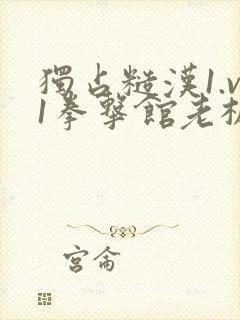 獨占糙漢1.v
1拳擊館老板
宮侖